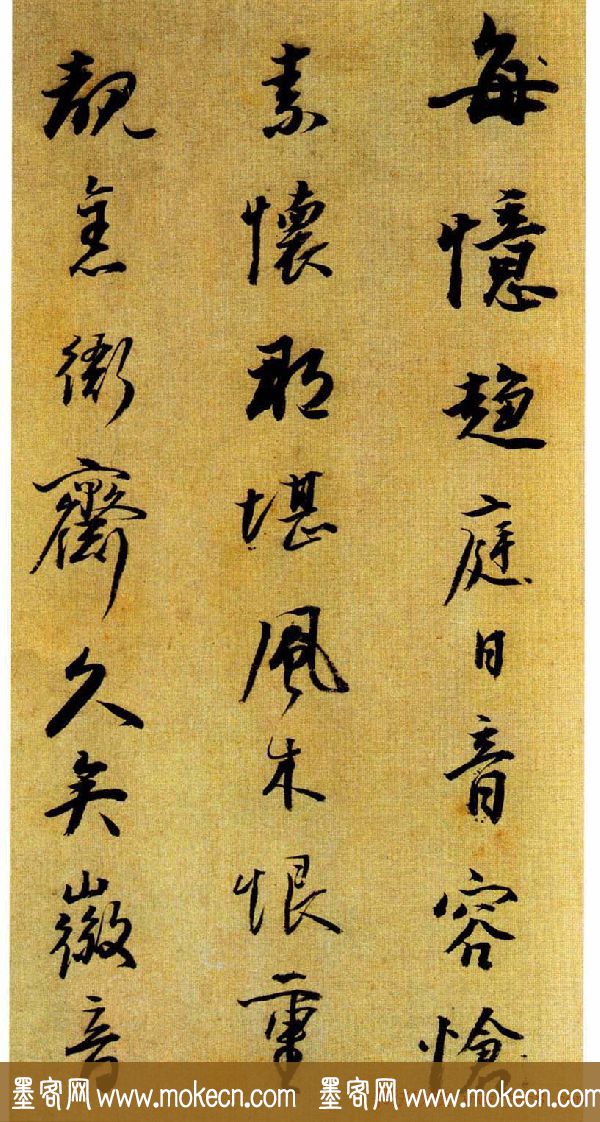 每憶趨庭日音容愴
素懷那堪風木恨重
覩齋久矣徽音
墨客网 www.mokecn.com 墨客网 www.mokecn.com